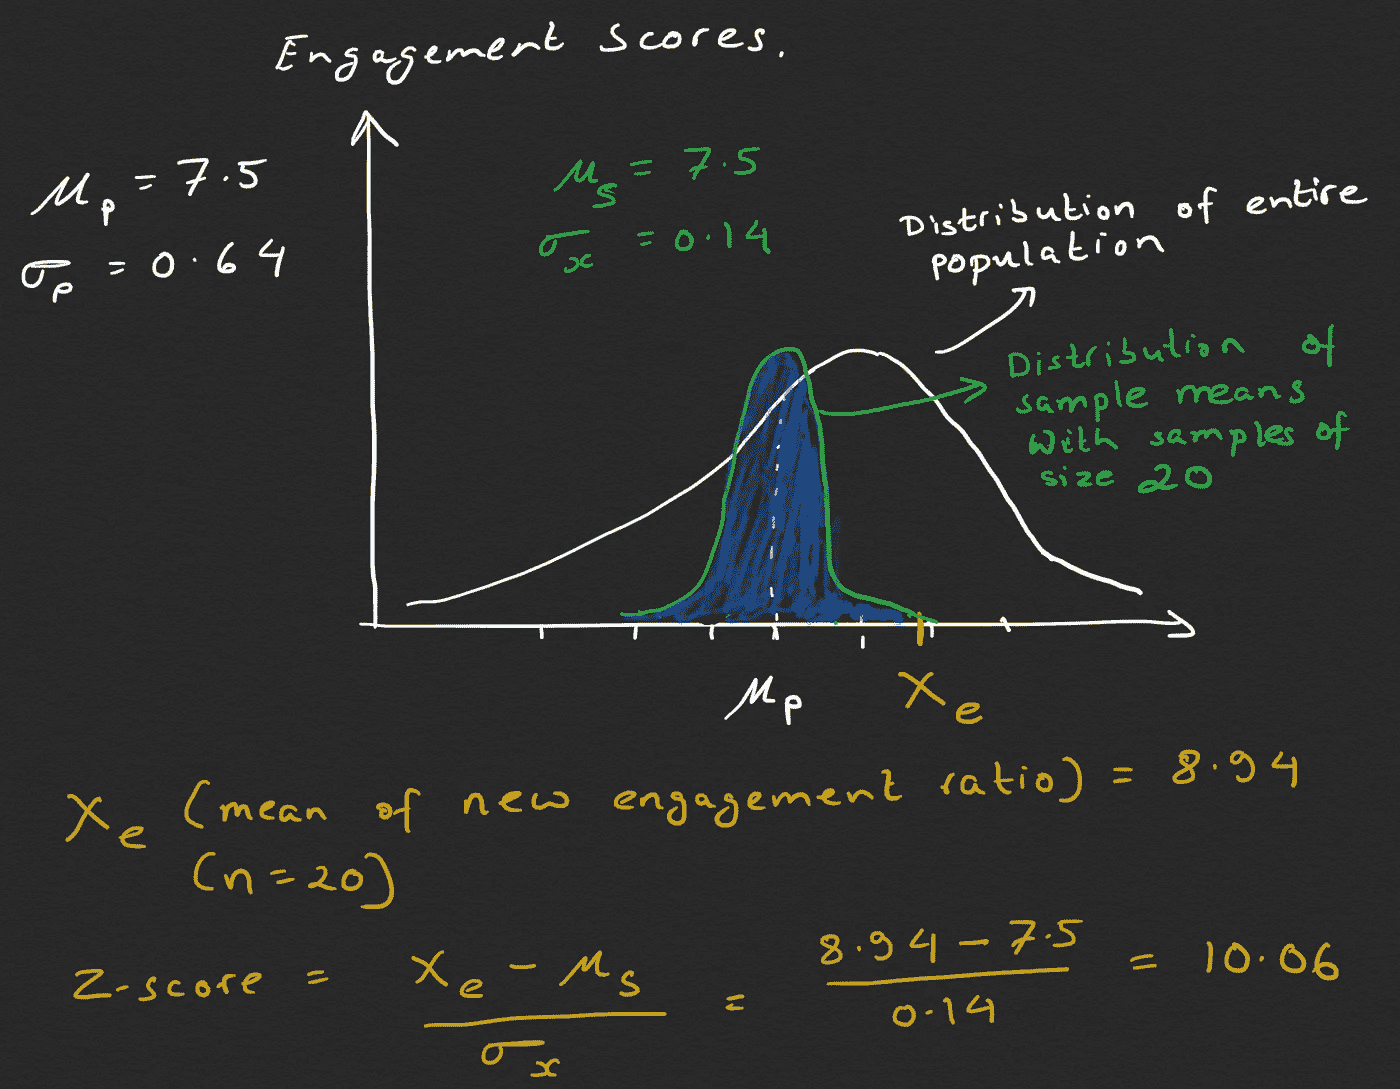 Engagement Scores.
μp = 7.5
σp = 0.64
μs = 7.5
σx = 0.14
Distribution of entire
population
Distribution of
sample means
with samples of
size 20
μp
Xe
Xe (mean of new engagement ratio) = 8.94
(n = 20)
Z-score = Xe - μs / σx = 8.94 - 7.5 / 0.14 = 10.06